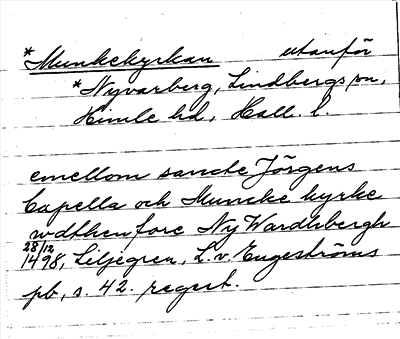 *Munkekyrkan utanför
*Nyvarberg, Lindbergs sn,
Himle hd, Hall. l.
emellom sancte Jörgens
Capella och Muncke kyrke
wdthenfore Ny Wardhbergh
28/12
1498, Liljegren, L. v. Engeströms
pb, s. 42. regest.